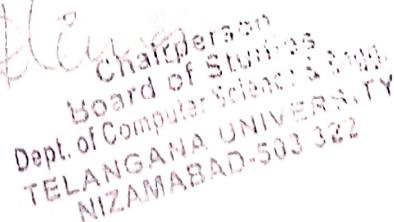 Chairperson
Board of Studies
Dept. of Computer Science & Engg.
TELANGANA UNIVERSITY
NIZAMABAD-503 322